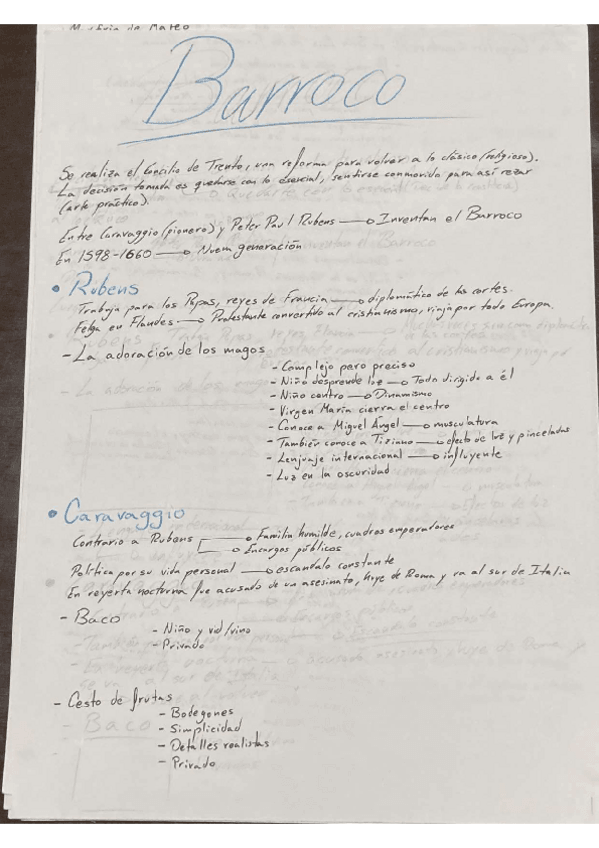 de Mateo
Barroco
Se realiza el Concilio de Trento, una reforma para volver a lo clásico (religioso).
La decisión tomada es quedarse con lo esencial, sentirse conmovido para así rezar
(arte práctico).
Entre Caravaggio (pionero) y Peter Paul Rubens → Inventan el Barroco
En 1598-1660 → Nueva generación
• Rúbens
Trabaja para los Papas, reyes de Francia → diplomático de las cortes.
Felga en Flandes → Protestante convertido al cristianismo, viaja por todo Europa.
- La adoración de los magos
- Complejo pero preciso
- Niño desprende luz → Todo dirigido a él
- Niño centro → Dinamismo
- Virgen María cierra el centro
- Conoce a Miguel Ángel → musculatura
- También conoce a Tiziano → efecto de luz y pinceladas
- Lenguaje internacional → influyente
- Luz en la oscuridad
• Caravaggio
Contrario a Rubens → Familia humilde, cuadros emperadores
→ Encargos públicos
Política por su vida personal → escandalo constante
En reyerta nocturna fue acusado de un asesinato, huye de Roma y va al sur de Italia
- Baco
- Niño y vid/vino
- Privado
- Cesto de frutas
- Bodegones
- Simplicidad
- Detalles realistas
- Privado